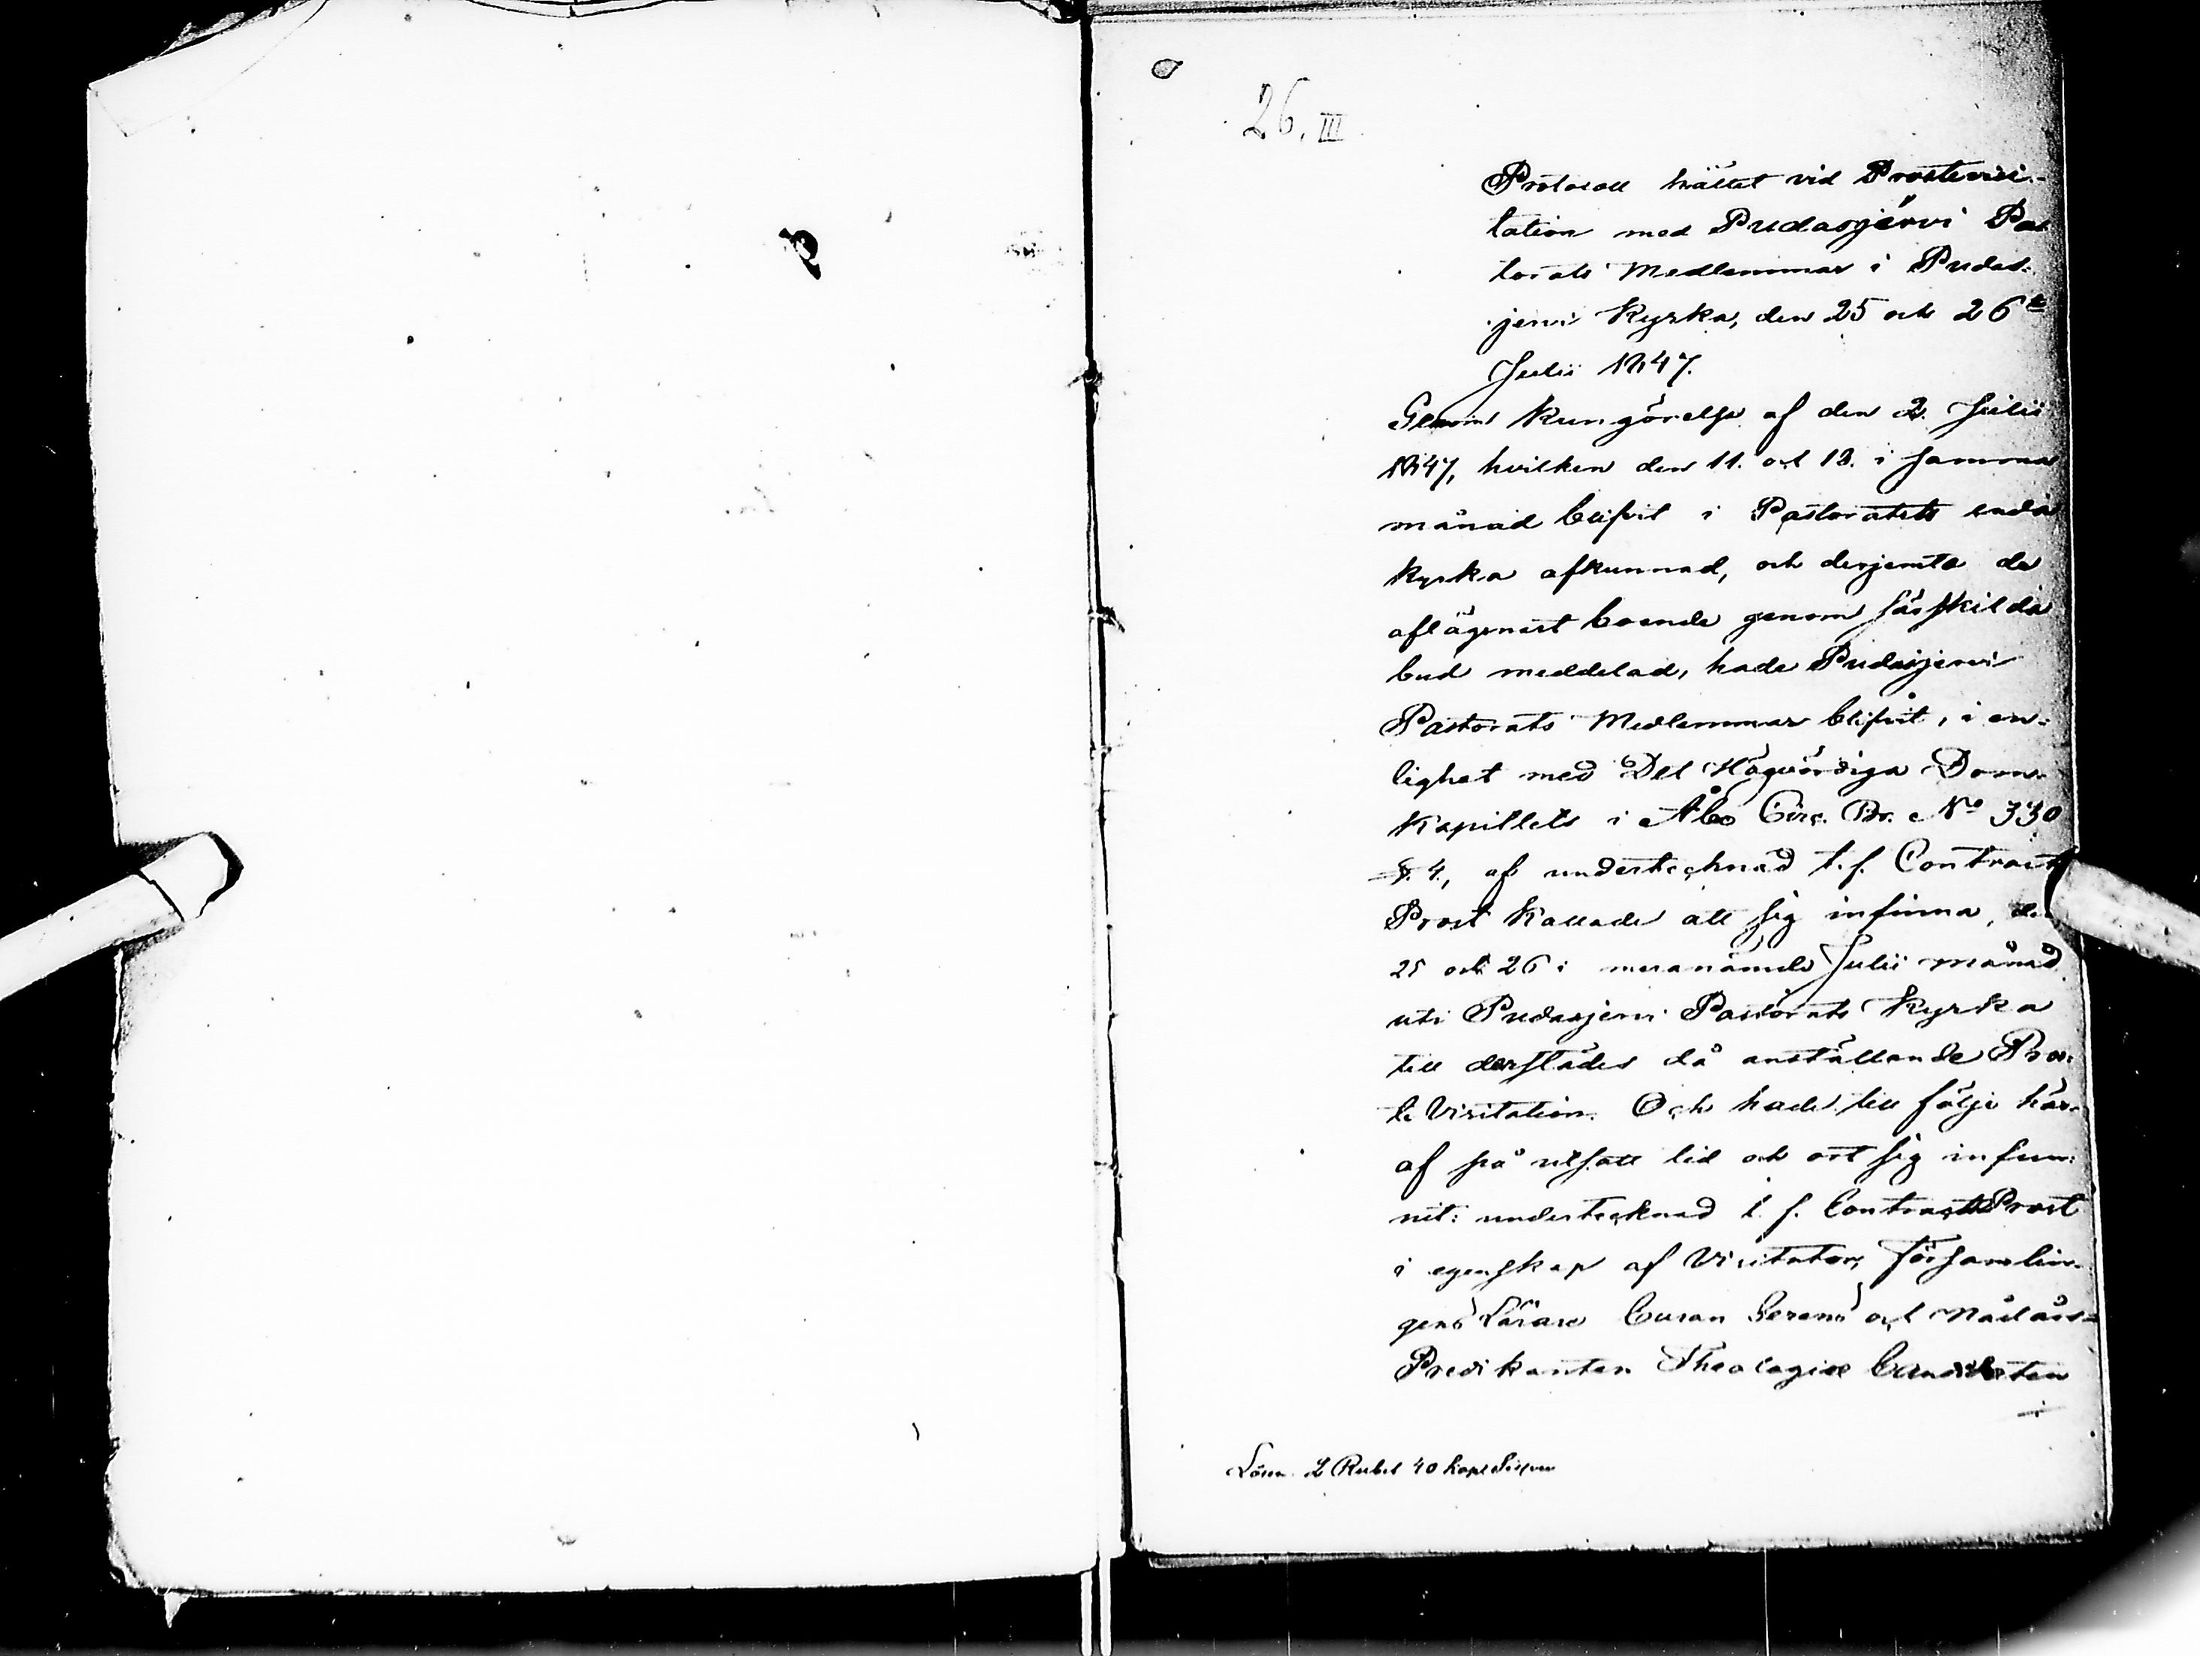 26. III
Protocoll hållet vid Prostevisi-
tation med Pudasjärvi Pas
torats Medlemmar i Pudas-
jervi Kyrka, den 25 och 26te
Julii 1847.
Genom Kungörelse af den 2. Julii
1847, hvilken den 11. och 18. i samma
månad blifvit i Pastoratets enda
kyrka afkunnad, och derjemte de
aflägsnast boende genom särskilda
bud meddelad, hade Pudasjervi
Pastorats Medlemmar blifvit, i en-
lighet med Det Högvördiga Dom-
Kapitlets i Åbo Circ. Br. No 330
§. 4, af undertecknad t.f. Contracts
Prost kallade att sig infinna, den
25 och 26 i meranämde Julii månad
uti Pudasjervi Pastorats Kyrka
till derstädes då anställande Pros-
te Visitation. Och hade till följe här-
af på utsatt tid och ort sig infun-
nit: undertecknad t. f. ContractsProst
i egenskap af Visitator, församlin-
gens Lärare Curam Gerens och Nådårs-
Predikanten Theologiæ Candidaten
Lösen 2 Rubel 40 kop Silfver